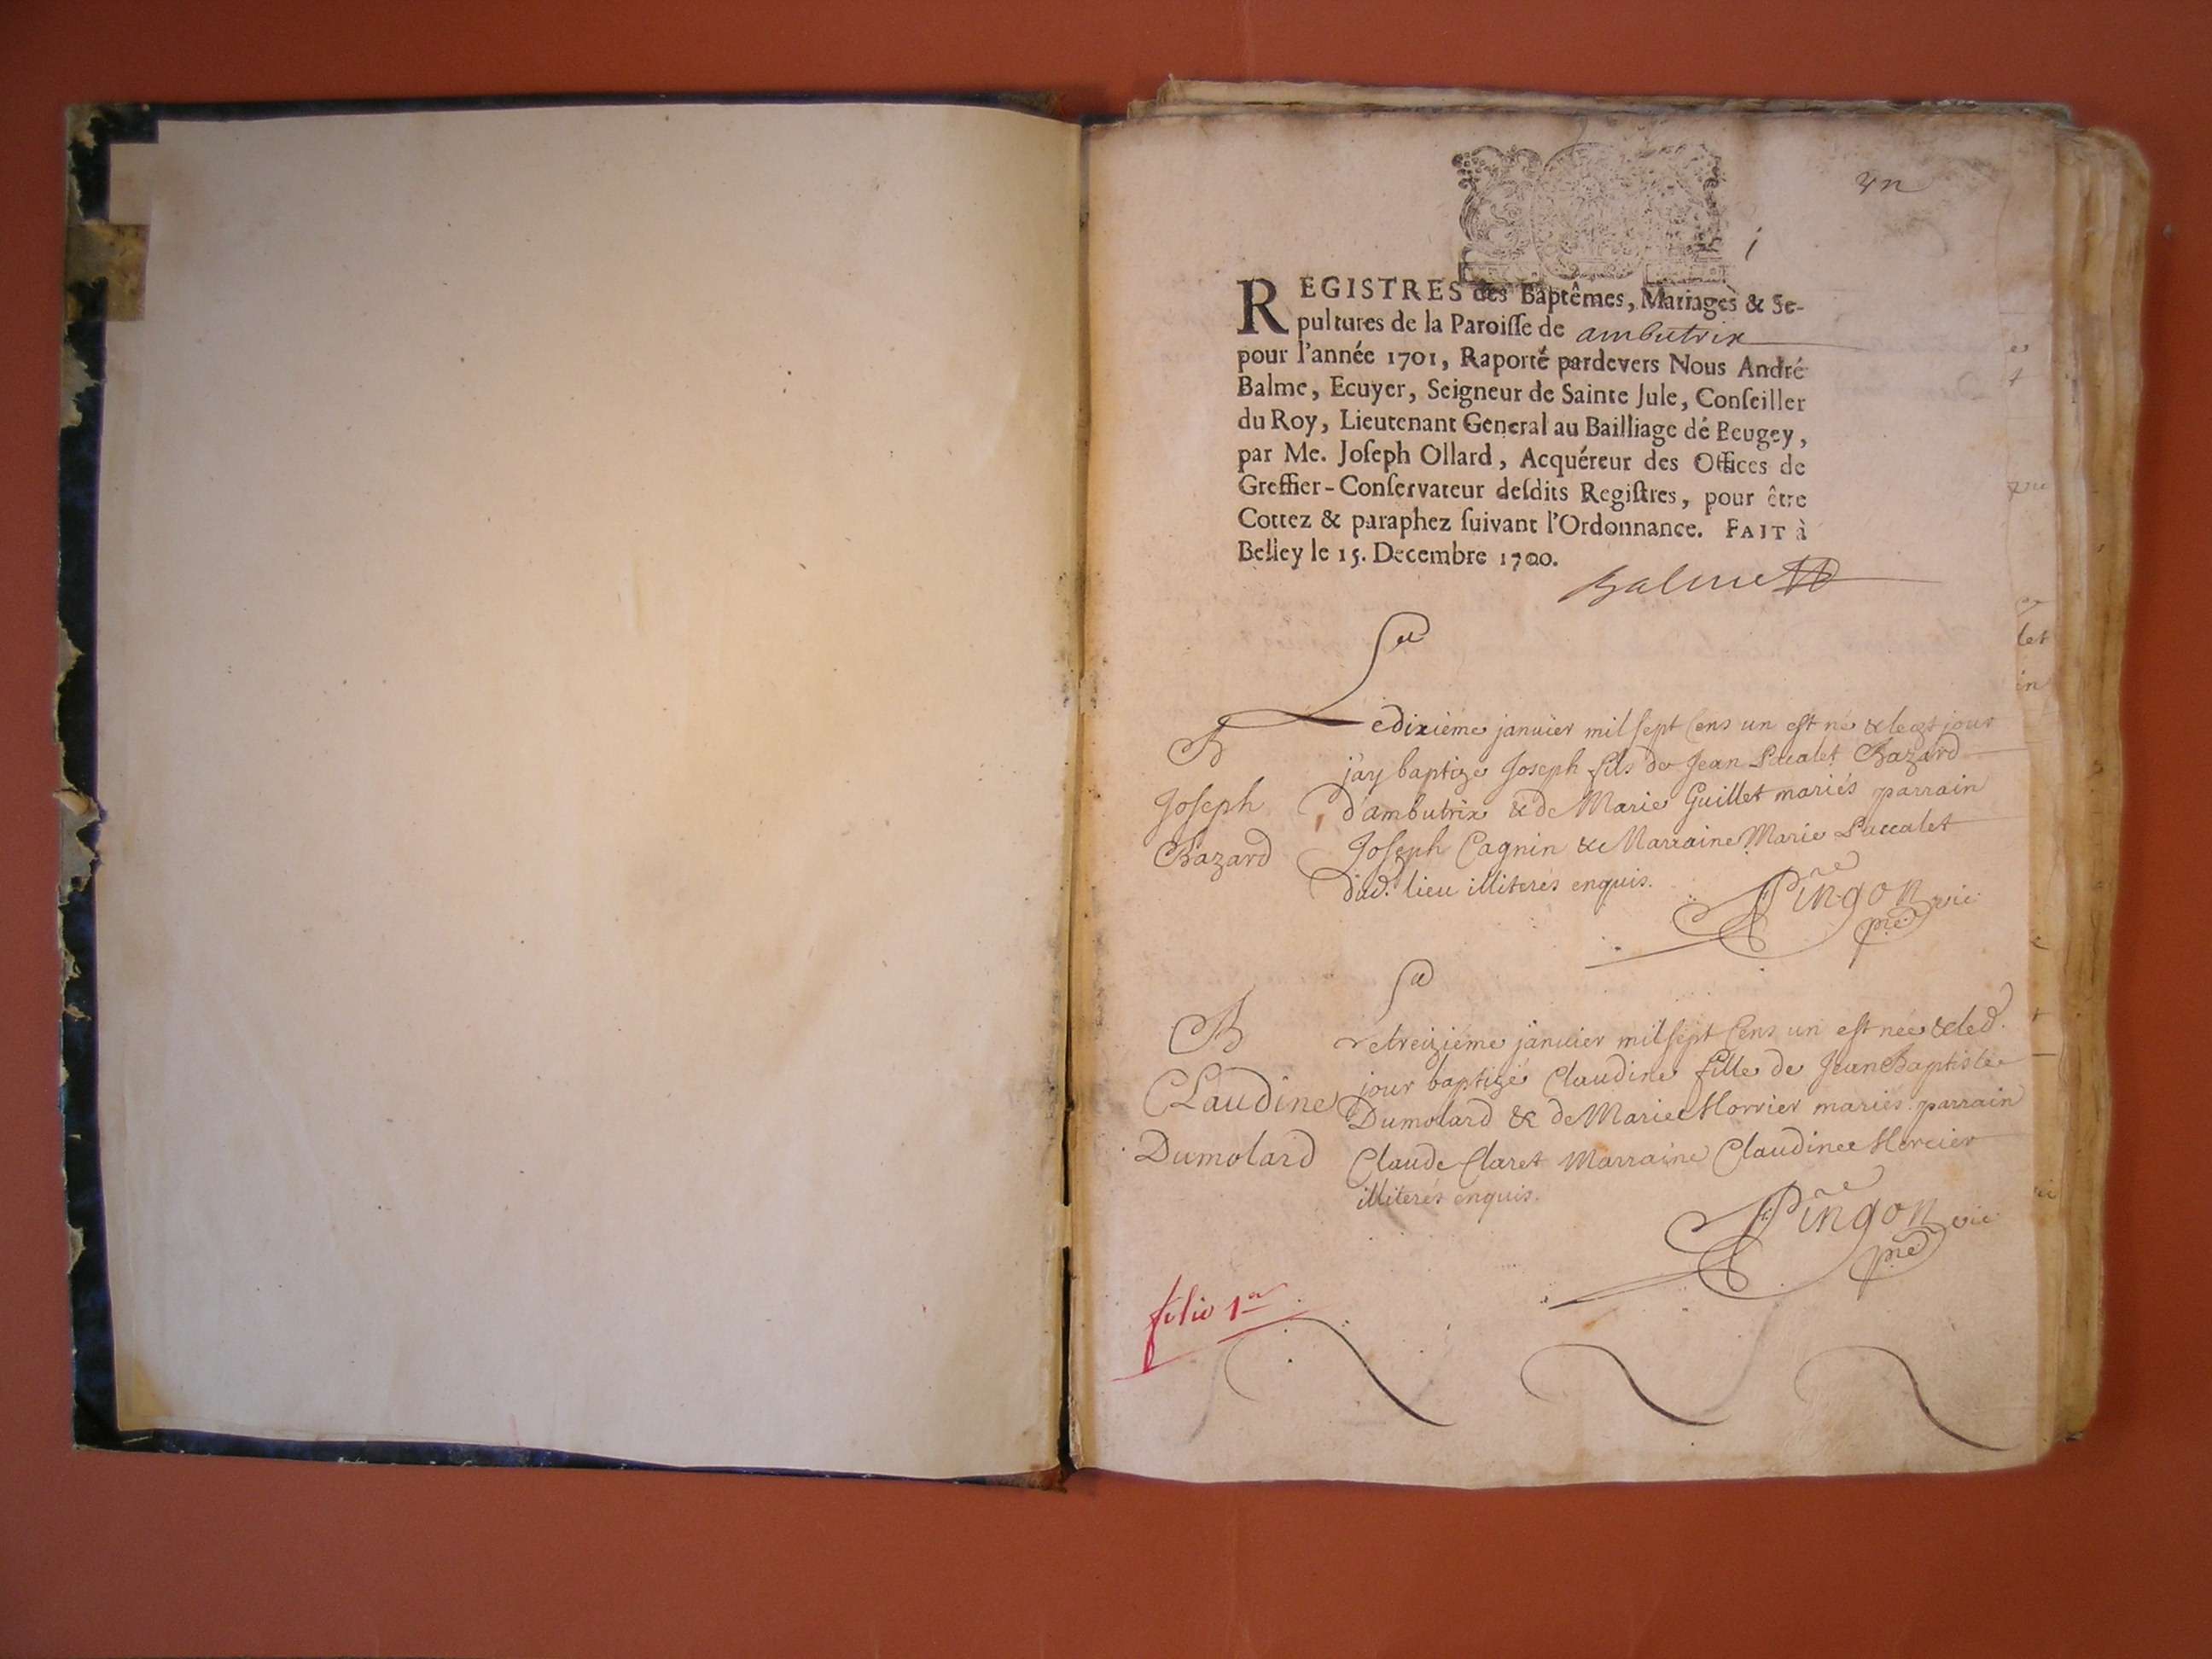 un
REGISTRES des Baptêmes, Mariages & Se-
pultures de la Paroisse de ambutrix
pour l'année 1701, Raporté pardevers Nous André
Balme, Ecuyer, Seigneur de Sainte Jule, Conseiller
du Roy, Lieutenant General au Bailliage de Beugey,
par Me. Joseph Ollard, Acquéreur des Offices de
Greffier-Conservateur desdits Registres, pour être
Cottez & paraphez suivant l'Ordonnance. FAIT à
Belley le 15. Decembre 1700.
Balme
B
Joseph
Bazard
Le dixiéme januier mil sept Cens un est né & le jour
j'ay baptizé Joseph fils de Jean Bazard
d'ambutrix & de Marie Guillet mariés parrain
Joseph Cagnin & Marraine Marie Luccalet
dud. lieu illiterés enquis.
Pingon vic
B
Claudine
Dumolard
Le treiziéme januier mil sept Cens un est née & led.
jour baptizée Claudine fille de Jean Baptiste
Dumolard & de Marie mariés parrain
Claude Claret Marraine Claudine Mercier
illiterés enquis.
Pingon vic
folio 1er